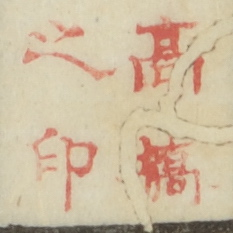 高橋
之印